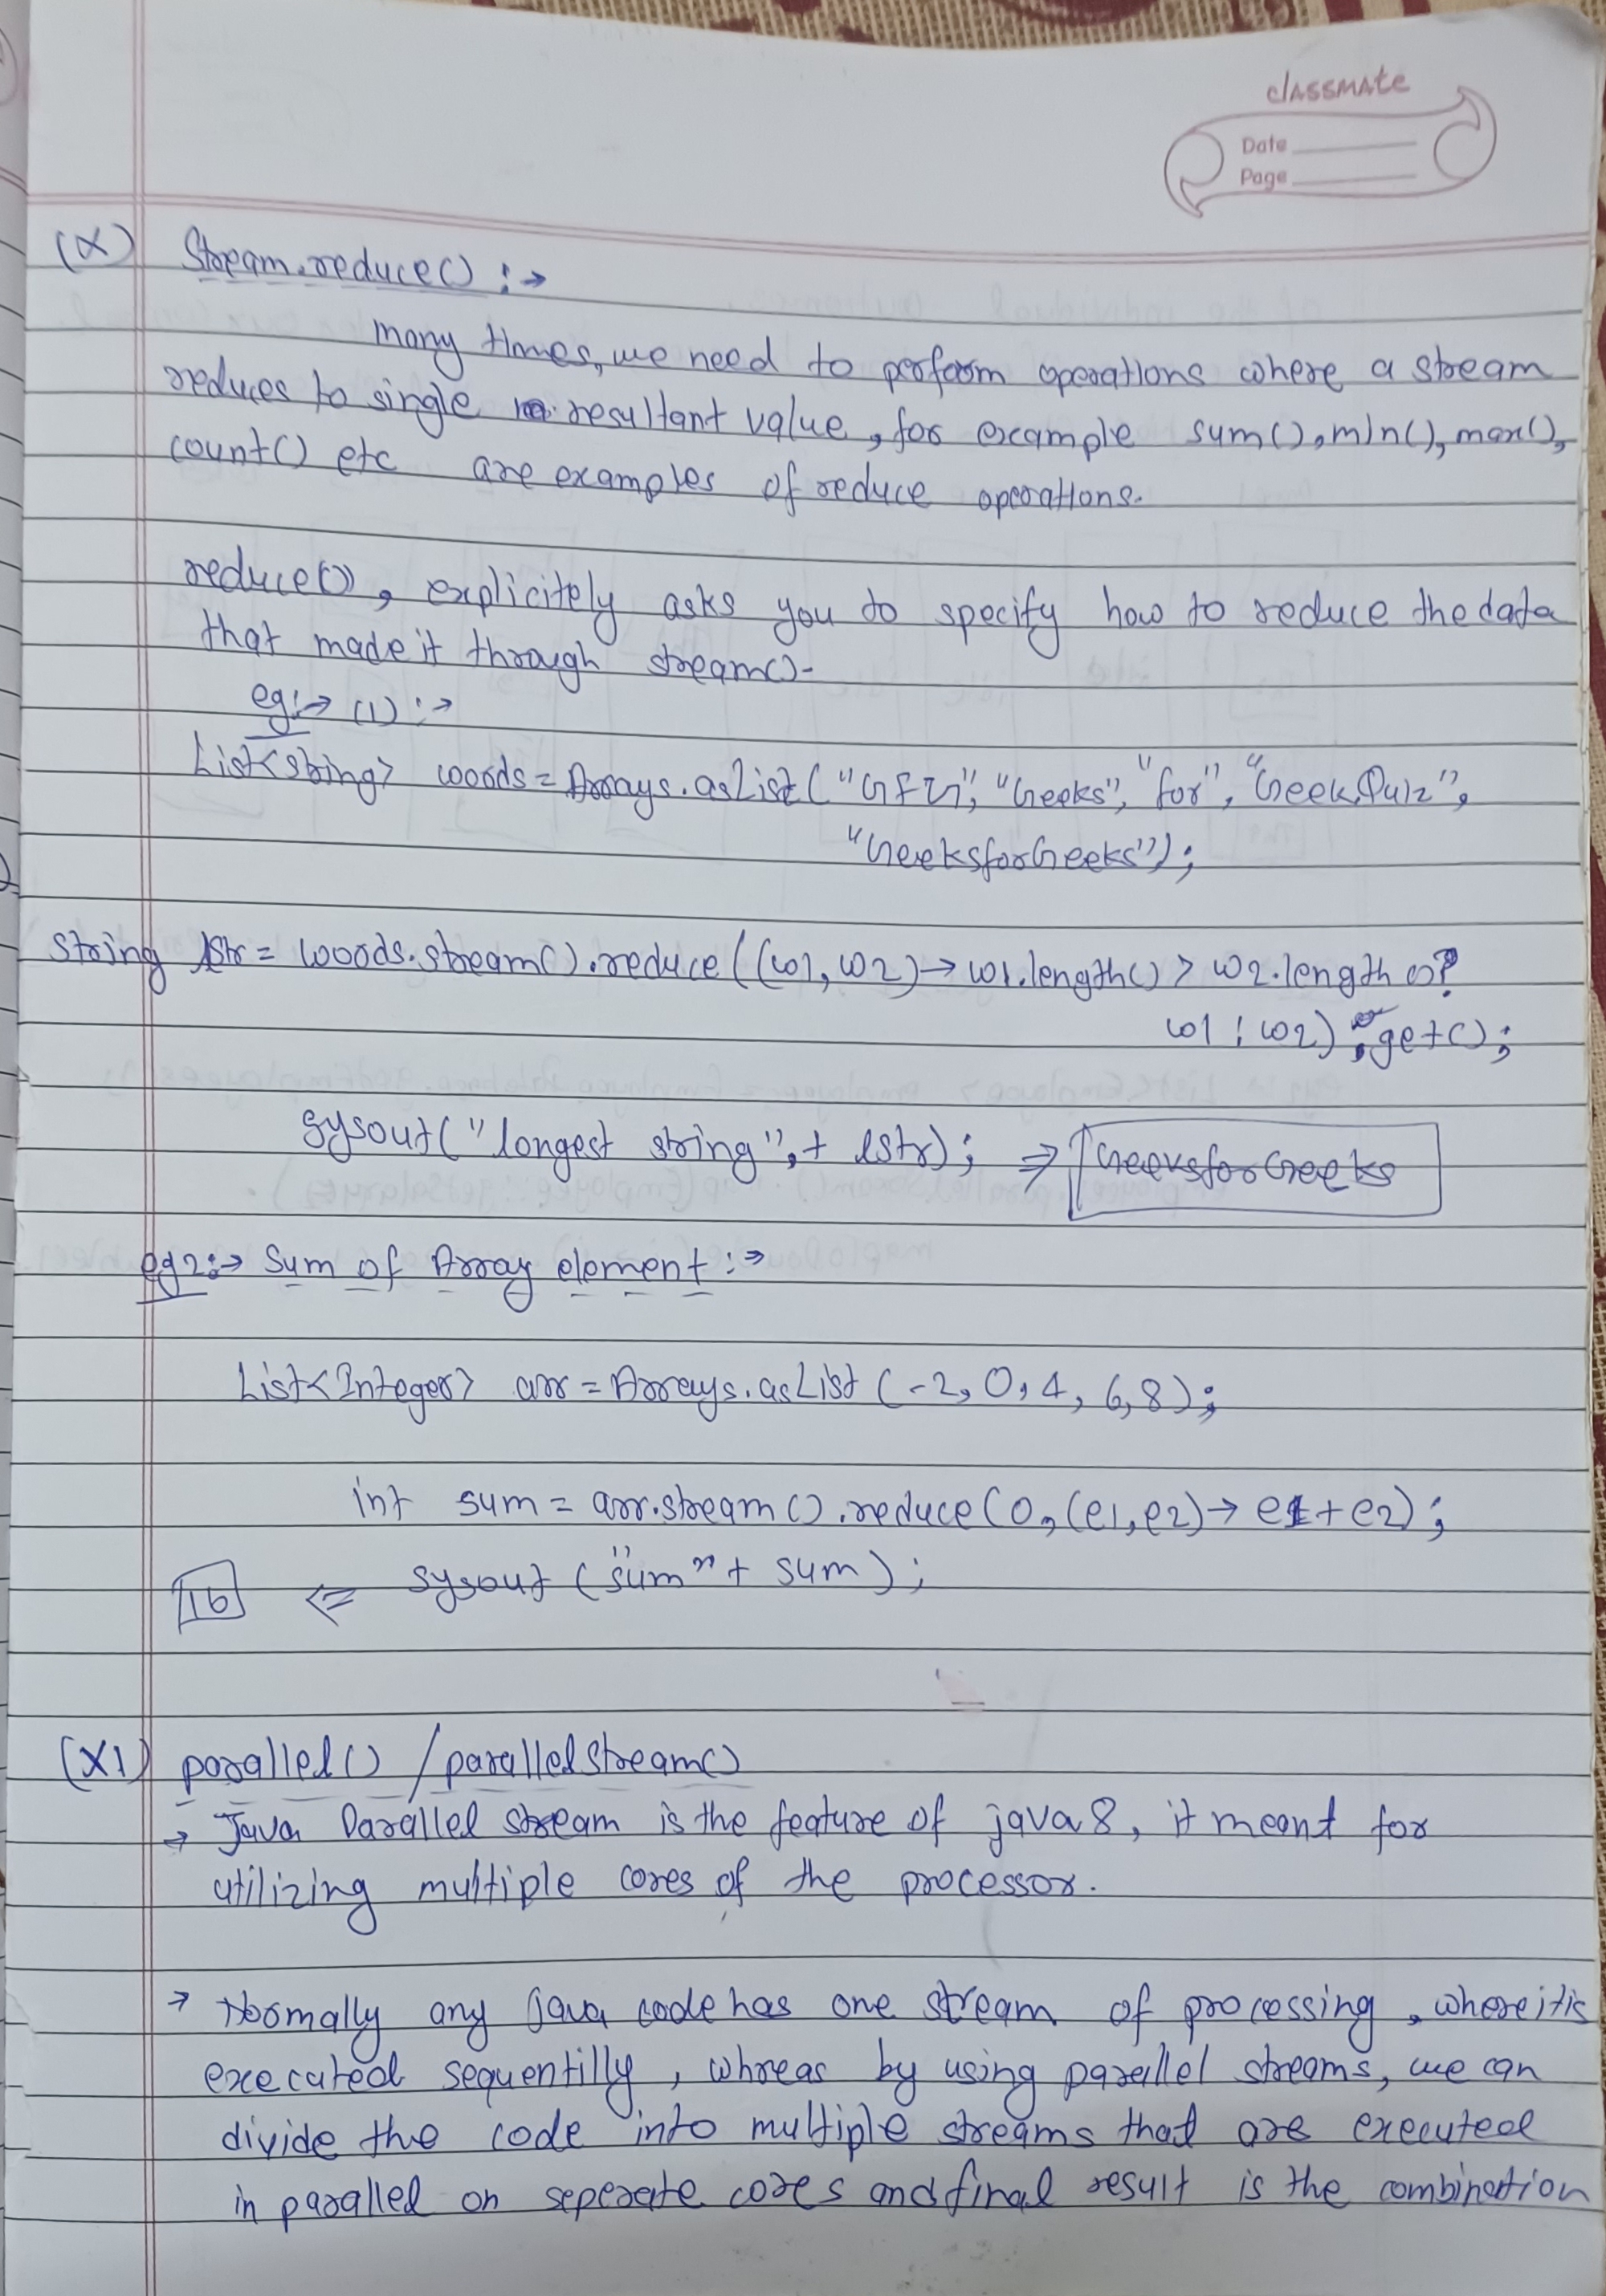 classmate
Date
Page
(X) Stream.reduce() :→
many times, we need to perform operations where a stream
reduces to single resultant value, for example sum(), min(), max(),
count() etc are examples of reduce operations.
reduce(), explicitely asks you to specify how to reduce the data
that made it through stream().
eg:→ (1) :→
List<String> words = Arrays.asList("GFG", "Geeks", "for", "GeekQuiz",
"GeeksforGeeks");
String lstr = words.stream().reduce((w1, w2) → w1.length() > w2.length()?
w1 : w2).get();
sysout("longest string", + lstr); ⇒ GeeksforGeeks
eg2:→ Sum of Array element :→
List<Integer> arr = Arrays.asList(-2, 0, 4, 6, 8);
int sum = arr.stream().reduce(0, (e1, e2) → e1 + e2);
16 ⇐ sysout("sum" + sum);
(XI) parallel() / parallelstream()
→ Java Parallel stream is the feature of java 8, it meant for
utilizing multiple cores of the processor.
→ Normally any java code has one stream of processing, where it is
executed sequentilly, whreas by using parallel streams, we can
divide the code into multiple streams that are executed
in parallel on seperate cores and final result is the combination